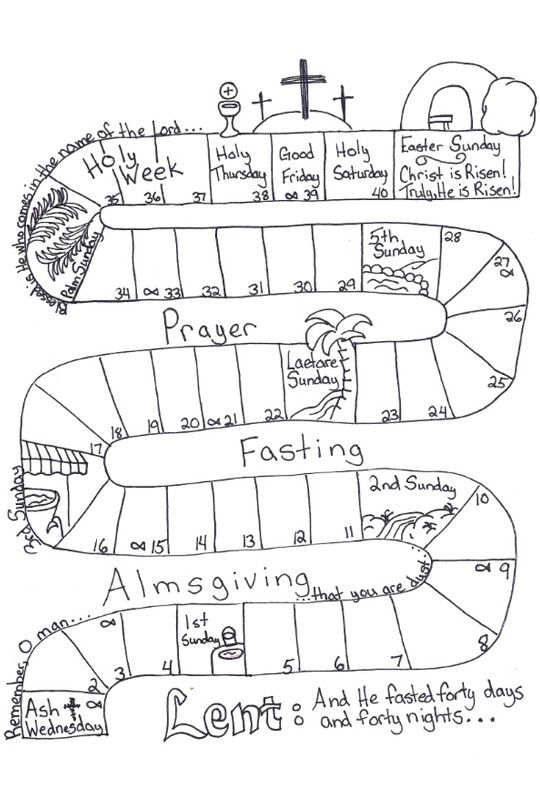 Blessed is He who comes in the name of the Lord...
Holy
Week
35
36
37
Holy
Thursday
38
Good
Friday
39
Holy
Saturday
40
Easter Sunday
Christ is Risen!
Truly, He is Risen!
Palm Sunday
34
33
32
31
30
29
5th
Sunday
28
27
26
25
Prayer
24
23
Laetare
Sunday
22
21
20
19
18
17
Fasting
3rd Sunday
16
15
14
13
12
11
2nd Sunday
10
9
8
Almsgiving
...that you are dust...
7
6
5
1st
Sunday
4
3
2
Remember, O man...
Ash
Wednesday
Lent: And He fasted forty days
and forty nights...